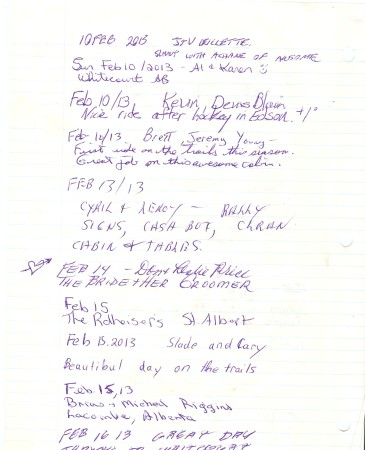 10 FEB 2013 STU OULLETTE
SUNNY WITH A CHANCE OF AWESOME
Sun Feb 10/2013 - Al & Karen
Whitecourt AB
Feb 10/13 Kevin, Denis Blain
Nice ride after hockey in Edson. +1°
Feb 12/13 Brett Jeremy Young -
First ride on the trails this season.
Great job on this awesome cabin.
FEB 13/13
CYRIL & LEROY - RALLY
SIGNS, CASH BOX, CLEAN
CABIN & TABLES.
FEB 14 - Don & Leslie
THE BRIDE & HER GROOMER
Feb 15
The St. Albert
Feb 15.2013 Slade and Cary
Beautiful day on the trails
Feb. 15, 13
Brian & Michael Riggins
Lacombe, Alberta
FEB 16 13 GREAT DAY